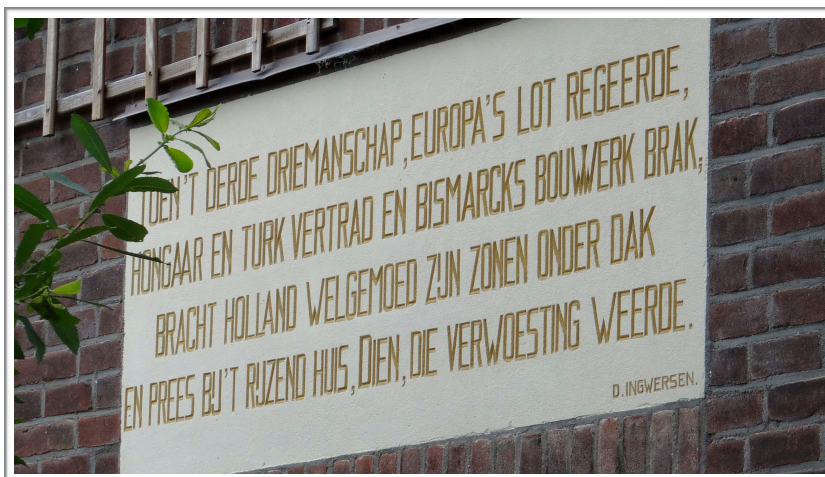 TOEN 'T DERDE DRIEMANSCHAP, EUROPA'S LOT REGEERDE,
HONGAAR EN TURK VERTRAD EN BISMARCKS BOUWWERK BRAK;
BRACHT HOLLAND WELGEMOED ZIJN ZONEN ONDER DAK
EN PREES BIJ 'T RIJZEND HUIS, DIEN, DIE VERWOESTING WEERDE.
D. INGWERSEN.